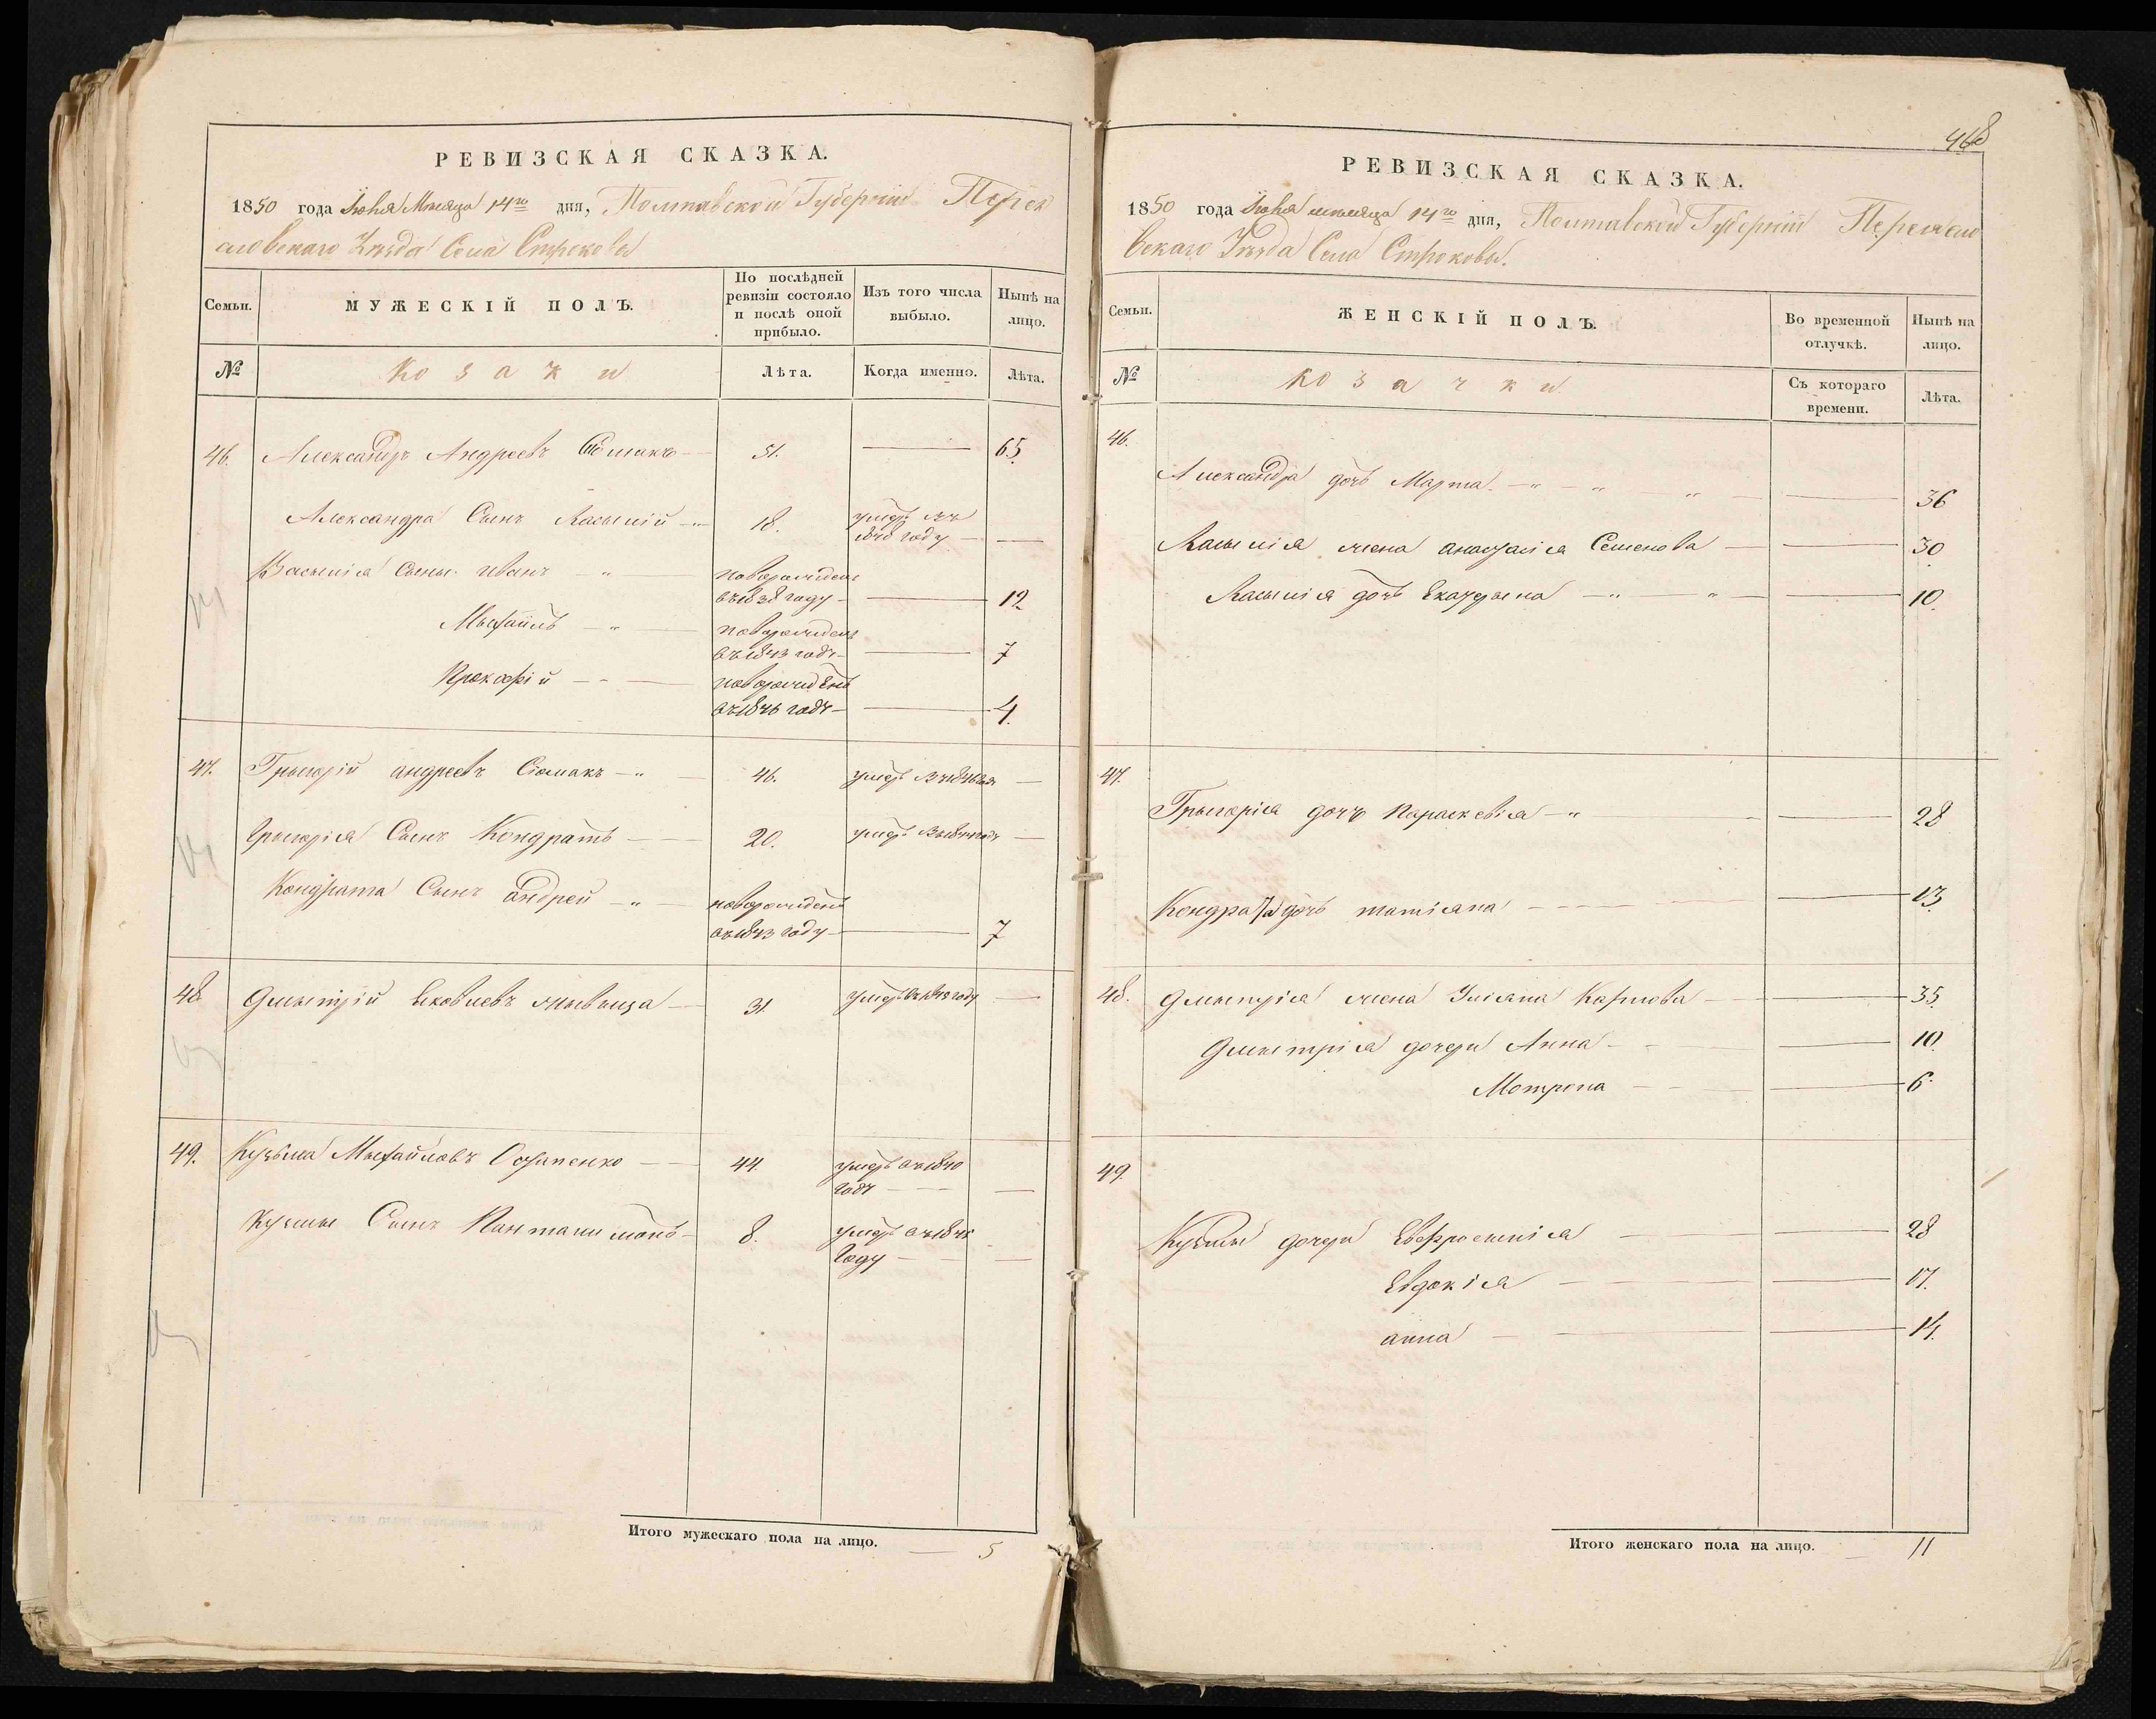 РЕВИЗСКАЯ СКАЗКА.
1850 года Іюня Месяца 14го дня, Полтавской Губерніи Перея
славскаго Уезда Села Строковы
Семьи.
МУЖЕСКІЙ ПОЛЪ.
По послѣдней
ревизіи состояло
и послѣ оной
прибыло.
Изъ того числа
выбыло.
Нынѣ на
лицо.
№
Козаки
Лѣта.
Когда именно.
Лѣта.
46. Александръ Андреевъ 51. 65
Александра Сынъ Васылій 18. умеръ въ
1848 году
Васылія Сыны Иванъ новорожденъ
въ 1838 году 12
Мыхаилъ новорожденъ
въ 1843 годъ 7
Прокофій новорожденъ
въ 1846 годъ 4.
47. Грыгорій андреевъ Сіомакъ 46. умеръ
Грыгорія Сынъ Кондратъ 20. умеръ
Кондрата Сынъ андрей новорожденъ
въ 1843 году 7
48. Дмытрій Яковлевъ 31. умеръ въ 1848 году
49. Кузьма Мыхайловъ Остапенко 44. умеръ въ 1840
годъ
Кузьмы Сынъ Пантилимонъ 8. умеръ
Году
Итого мужескаго пола на лицо. 5
468
РЕВИЗСКАЯ СКАЗКА.
1850 года Іюня месяца 14го дня, Полтавской Губерніи Переясла
вскаго Уезда Села Строковы.
Семьи.
ЖЕНСКІЙ ПОЛЪ.
Во временной
отлучкѣ.
Нынѣ на
лицо.
№
Козачки
Съ котораго
времени.
Лѣта.
46.
Александра дочь Марта 36
Васылія жена анастасія Семенова 30
Васылія дочь Екатерына 10.
47.
Грыгорія дочъ Параскевія 28
Кондрата дочь татіана 13
48. Дмытрія жена Уліана Карпова 35
Дмытрія дочери Анна 10.
Мотрона 6.
49.
Кузьмы дочери Евфросинія 28
Евдокія 17.
анна 14.
Итого женскаго пола на лицо. 11